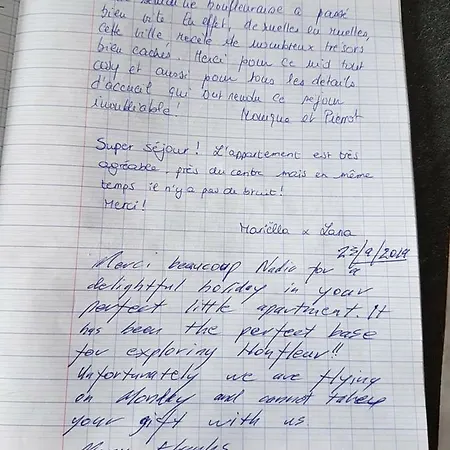 semaine honfleuraise a passé
bien vite en effet. De ruelles en ruelles,
cette ville recèle de nombreux trésors
bien cachés. Merci pour ce nid tout
cosy et aussi pour tous les détails
d'accueil qui ont rendu ce séjour
inoubliable! Monique et Pierrot
Super séjour! L'appartement est très
agréable, près du centre mais en même
temps il n'y a pas de bruit!
Merci!
Mariëlla x Lana
23/9/2019
Merci beaucoup Nadia for a
delightful holiday in your
perfect little apartment. It
has been the perfect base
for exploring Honfleur!!
Unfortunately we are flying
on Monday and cannot take
your gift with us.
thanks